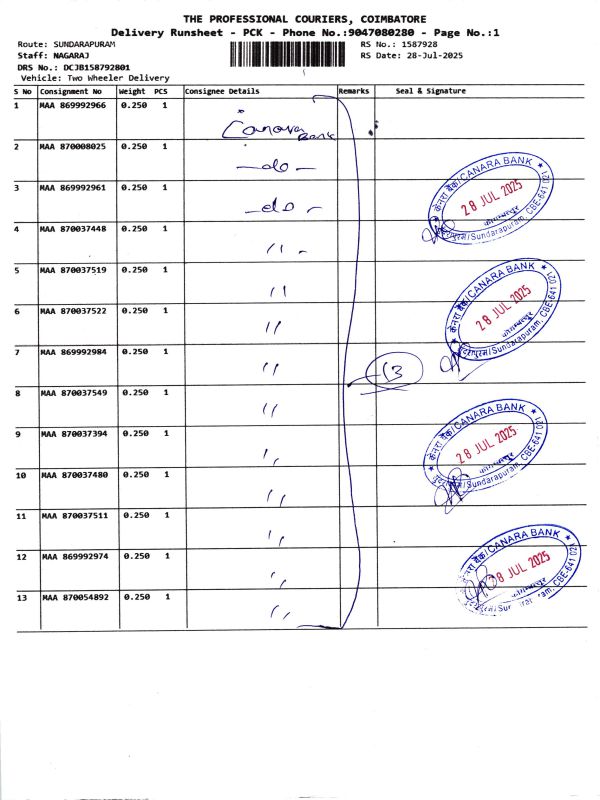 THE PROFESSIONAL COURIERS, COIMBATORE
Delivery Runsheet - PCK - Phone No.:9047080280 - Page No.:1
Route: SUNDARAPURAM RS No.: 1587928
Staff: NAGARAJ RS Date: 28-Jul-2025
DRS No.: DCJB158792801
Vehicle: Two Wheeler Delivery
S No Consignment No Weight PCS Consignee Details Remarks Seal & Signature
1 MAA 869992966 0.250 1 Canara Bank
2 MAA 870008025 0.250 1 -do-
3 MAA 869992961 0.250 1 -do-
4 MAA 870037448 0.250 1 〃 -
5 MAA 870037519 0.250 1 〃
6 MAA 870037522 0.250 1 〃
7 MAA 869992984 0.250 1 〃 13
8 MAA 870037549 0.250 1 〃
9 MAA 870037394 0.250 1 〃
10 MAA 870037480 0.250 1 〃
11 MAA 870037511 0.250 1 〃
12 MAA 869992974 0.250 1 〃
13 MAA 870054892 0.250 1 〃
केनरा बैंक/CANARA BANK ★
28 JUL 2025
कोयम्बत्तूर
/Sundarapuram, CBE-641 021
केनरा बैंक/CANARA BANK ★
28 JUL 2025
कोयम्बत्तूर
/Sundarapuram, CBE-641 021
★ केनरा बैंक/CANARA BANK ★
28 JUL 2025
कोयम्बत्तूर
/Sundarapuram, CBE-641 021
केनरा बैंक/CANARA BANK ★
8 JUL 2025
कोयम्बत्तूर
CBE-641 021